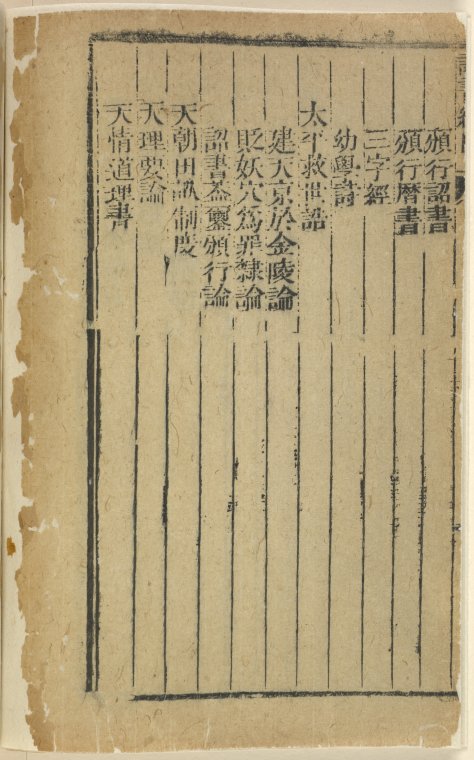 頒行詔書
頒行曆書
三字經
幼學詩
太平救世誥
建天京於金陵論
貶妖穴爲罪隸論
詔書蓋璽頒行論
天朝田畝制度
天理要論
天情道理書